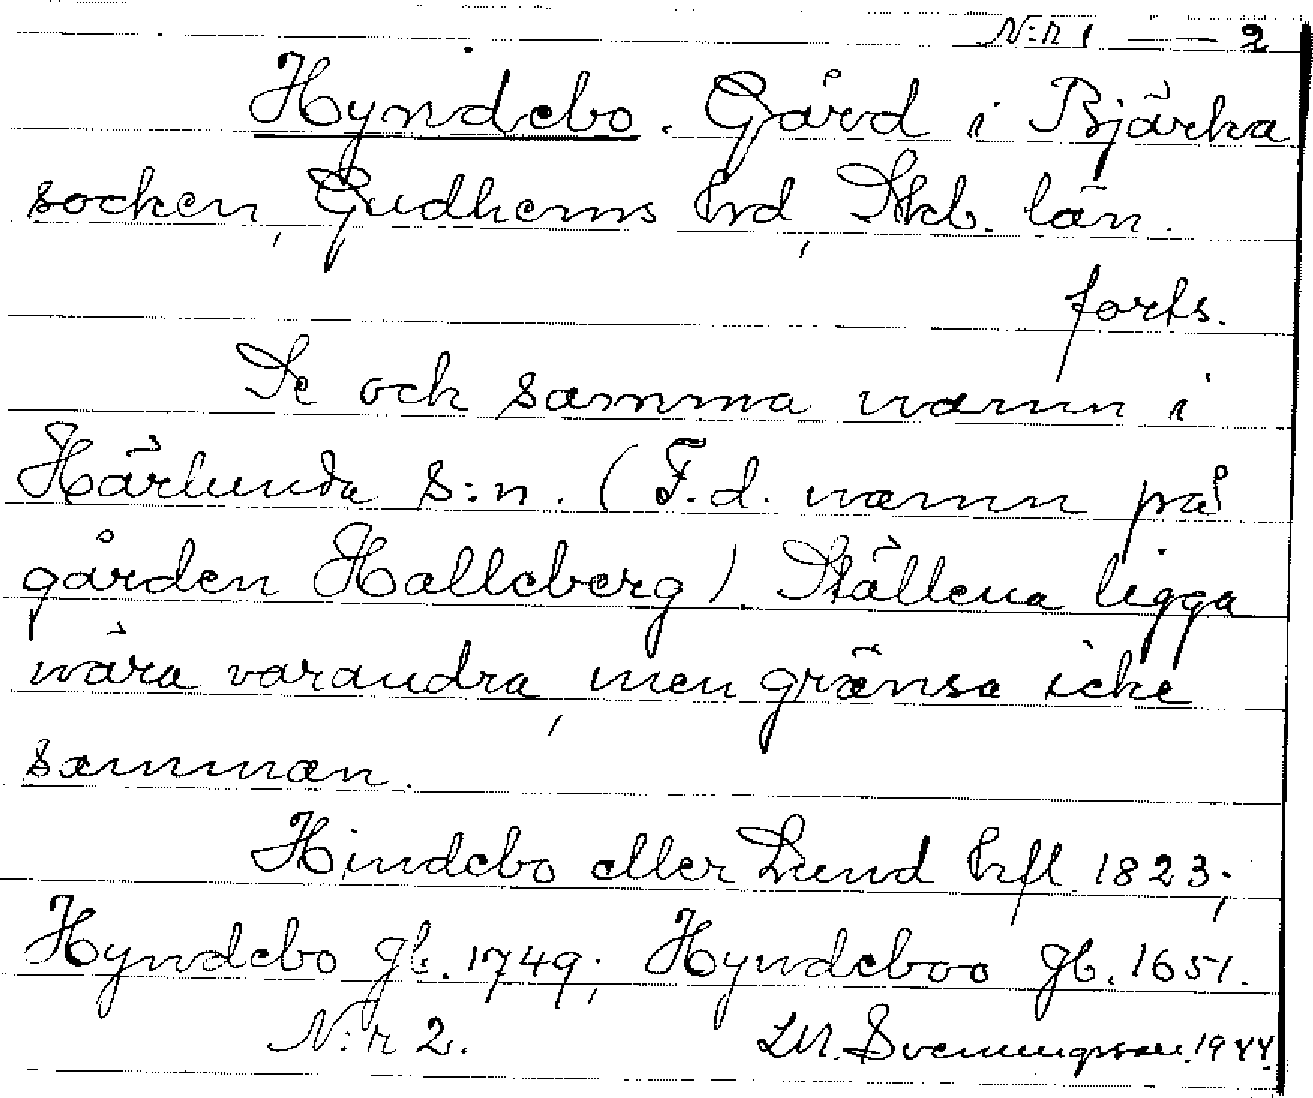 N:r 1 — 2
Hyndebo. Gård i Bjärka
socken, Gudhems hrd, Skb. län.
forts.
Se ock samma namn i
Härlunda s:n. (F.d. namn på
gården Halleberg). Ställena ligga
nära varandra, men gränsa icke
samman.
Hindebo eller Lund hfl 1823;
Hyndebo jb. 1749; Hyndeboo jb. 1651.
N:r 2. LM. Svenungsson. 1944.